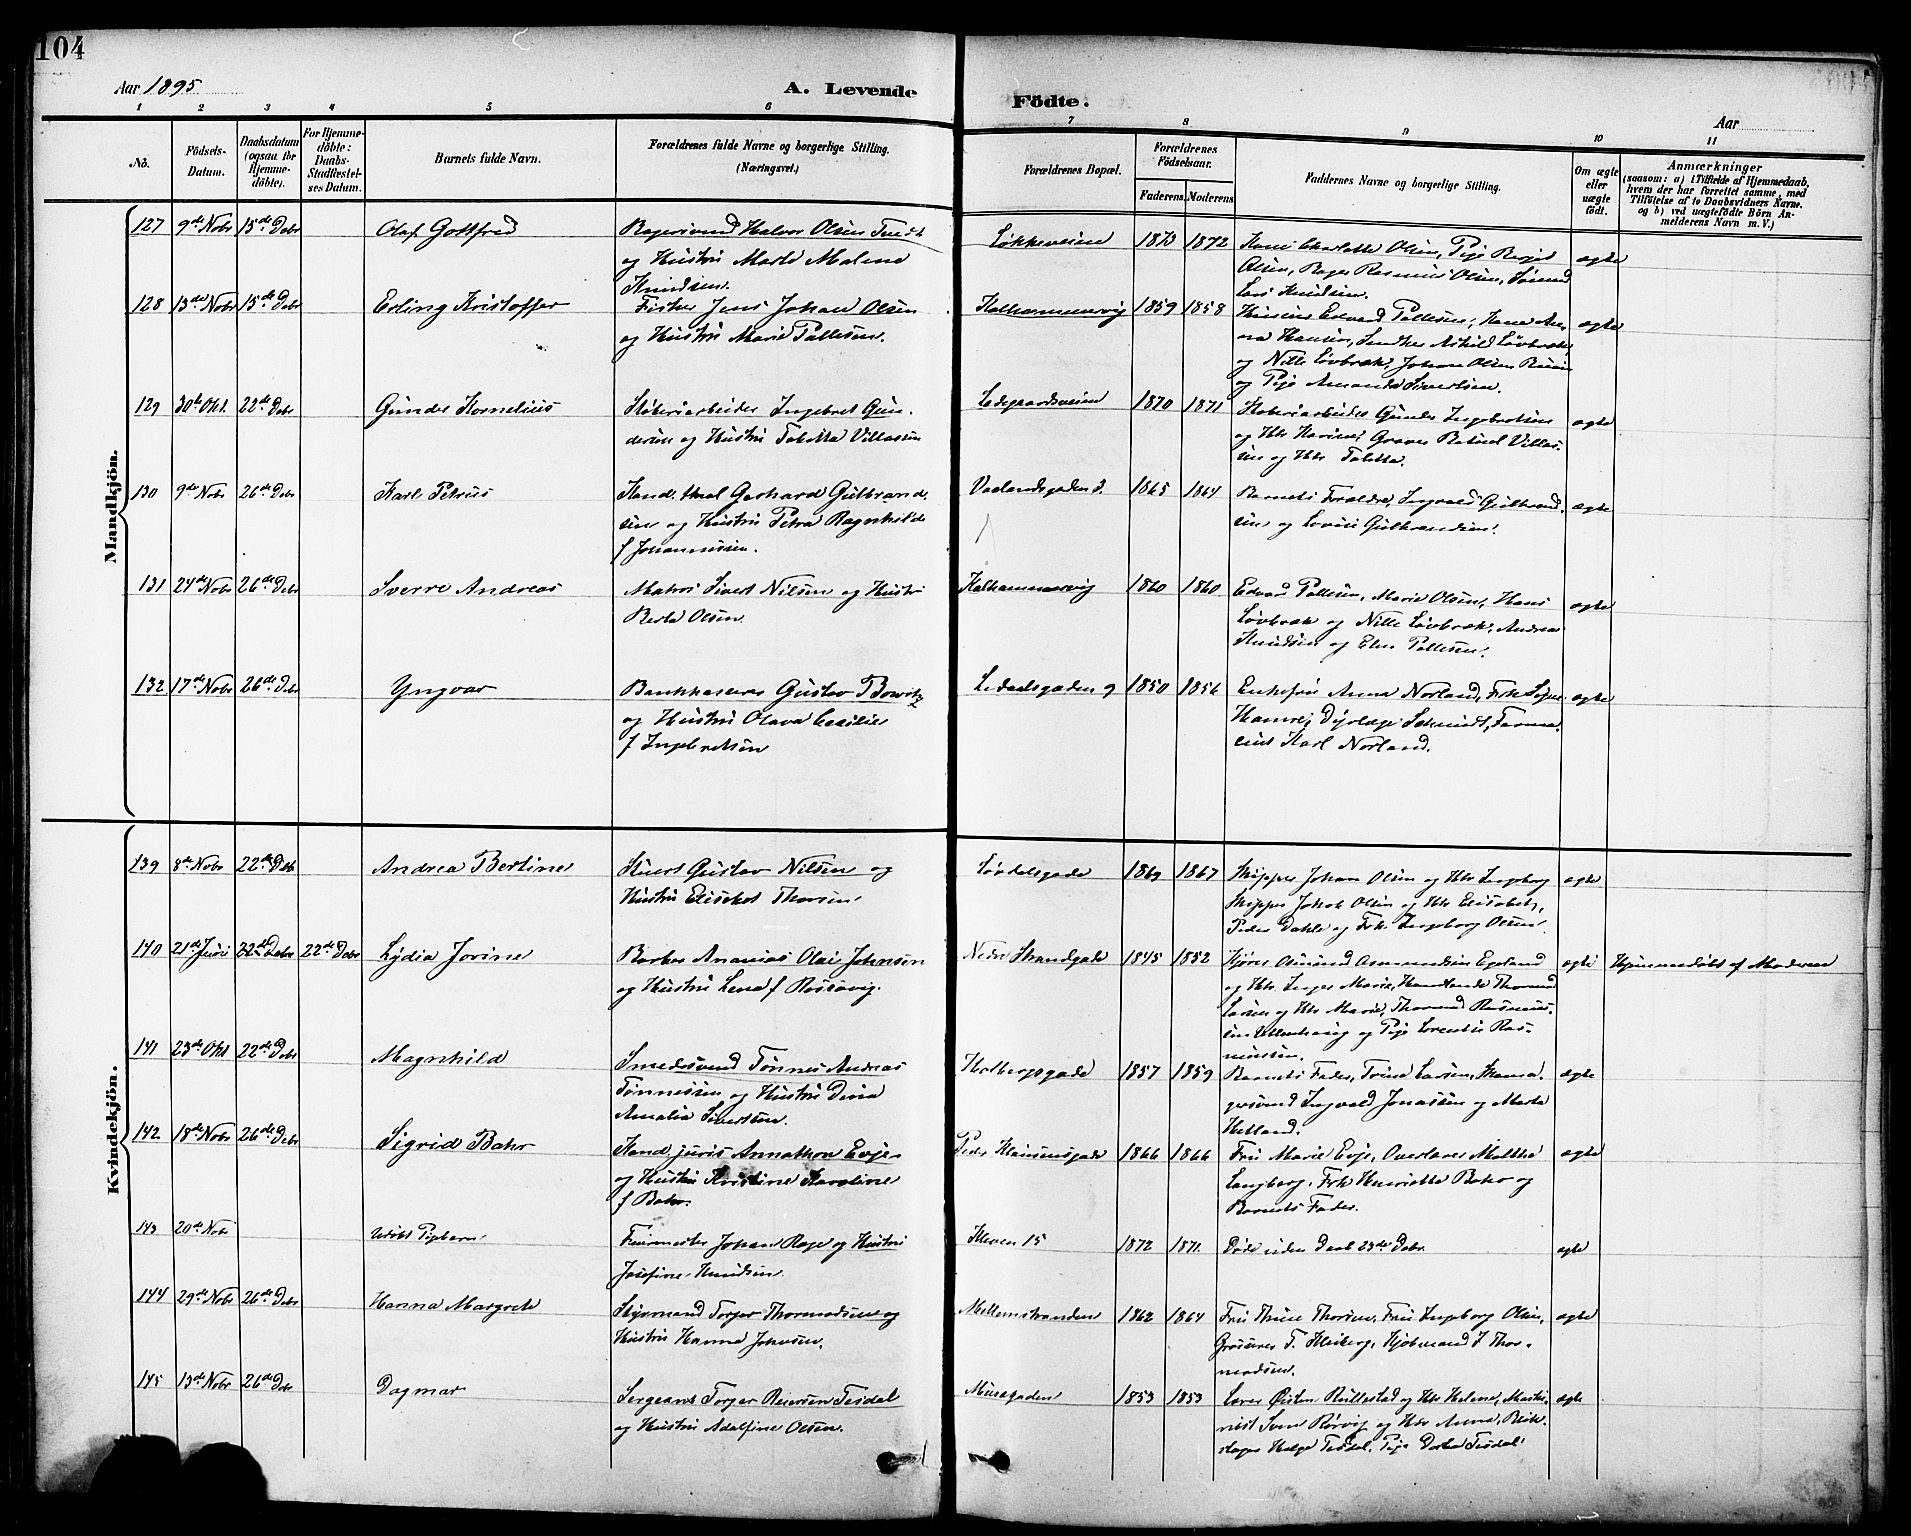 104
Aar 1895
A. Levende
Födte.
Aar
1 2 3 4 5 6 7 8 9 10 11
No.
Födsels-Datum.
Daabsdatum (ogsaa for Hjemmedöbte).
For Hjemmedöbte: Daabs-Stadfæstelses Datum.
Barnets fulde Navn.
Forældrenes fulde Navne og borgerlige Stilling. (Næringsvei.)
Forældrenes Bopæl.
Forældrenes Födselsaar.
Faderens. Moderens
Faddernes Navne og borgerlige Stilling.
Om ægte eller uægte födt.
Anmærkninger
(saasom: a) i Tilfælde af Hjemmedaab, hvem der har forrettet samme, med Tilföielse af to Daabsvidners Navne, og b) ved uægtefödte Börn Anmelderens Navn m. V.)
Mandkjön.
127 9de Nobr 15de Debr Olaf Gottfred
Bagersvend Halvor Olsen Tvedt
og Hustru Marte Malene
Knudsen.
Løkkeveien 1873 1872
Kone Charlotte Olsen, Pige Bergit
Olsen, Bager Rasmus Olsen, Sømand
Lars Knudsen.
ægte
128 13de Nobr 15de Debr Erling Kristoffer
Fisker Jens Johan Olsen
og Hustru Marie Pallesen.
Kalhammervig 1859 1858
Edvard Pallesen, Kone Anna
Hansen, Løvbræk,
og Nille Løvbræk, Johan Olsen
og Pige Amanda Sivertsen.
ægte
129 30te Okt. 22de Debr Gunder Kornelius
Støberiarbeider Ingebret Gundersen
og Hustru Tabetta Villassen
Ledegaardsveien 1870 1871
Støberiarbeider Gunder Ingebretsen
og Hstr Karine, Graver Villassen
og Hstr Tabetta.
ægte
130 9de Nobr 26de Debr Karl Petrus
Kand. theol Gerhard Gulbrandsen
og Hustru Petra Ragnhilde
f Johannessen.
Vaalandsgaden 3. 1865 1864
Barnets Forældre, Ingvald Gulbrandsen
og Lovise Gulbrandsen.
ægte
131 24de Nobr 26de Debr Sverre Andreas
Matros Sivert Nilsen og Hustru
Berta Olsen.
Kalhammervig 1860 1860
Edvard Pallesen, Marie Olsen, Hans
Løvbræk og Nille Løvbræk, Andreas
Knudsen og Elen Pallesen.
ægte
132 17de Nobr 26de Debr Yngvar
Bankkasserer Gustav Bowitz
og Hustru Olava Cecilie
f Ingebretsen
Ledaalsgaden 9 1850 1856
Enkefru Anna Norland, Frk
Hamre, Dyrlæge Schmidt, Farmaceut
Karl Norland.
ægte
Kvindekjön.
139 8de Nobr 22de Debr Andrea Bertine
Stuert Gustav Nilsen og
Hustru Elisebet Thorsen.
Løvdalsgade 1869 1867
Skipper Johan Olsen og Hstr Ingeborg
Skipper Jakob Olsen og Hstr Elisabet,
Peder Dahle og Frk Ingeborg Olsen.
ægte
140 21de Juni 22de Debr 22de Debr Lydia Jorine
Barber Ananias Olai Johnsen
og Hustru Lena f Rossavig.
Nedre Strandgade 1845 1852
Kjører Osmund Osmundsen Egeland
og Hstr Inger Marie, Handlende Thormod
Larsen og Hstr Marie, Thormod Rasmussen
og Pige Lorentse Rasmussen.
ægte
Hjemmedøbt af Moderen
141 23de Okt 22de Debr Magnhild
Smedesvend Tønnes Andreas
Tønnessen og Hustru Dina
Amalia Sivertsen.
Holbergsgade 1857 1859
Barnets Fader, Trine Larsen, Skomagersvend
Ingvald Jonassen og Marta
Helland.
ægte
142 18de Nobr 26de Debr Sigrid Bahr
Kand. juris Annathon Evje
og Hustru Kristine Karoline
f Bahr.
Peder Klausensgade 1866 1866
Fru Marie Evje, Overlærer Malthe
Langberg, Frk Henriette Bahr og
Barnets Fader.
ægte
143 20de Nobr Udøbt Pigebarn
Johan Rage og Hustru
Josefine Knudsen.
Kleven 15 1872 1871.
Døde uden Daab 23de Debr.
ægte
144 29de Nobr 26de Debr Hanna Margrete
Styrmand Torger Thormodsen og
Hustru Hanna Johnsen.
Mellemstranden 1862 1864
Fru Thrine Thorsen, Fru Ingeborg Olsen,
Grosserer T. Kleiberg, Kjøbmand T Thormodsen.
ægte
145 13de Nobr 26de Debr Dagmar
Sergeant Torger Reiersen Tesdal
og Hustru Adolfine Olsen.
Musegaden 1853 1853
Lærer Øisten Rullestad og Hstr Helene, Maskinist
Sven Rørvig og Hstr Anna, Blikslager
Helge Tesdal, Pige Dorthea Tesdal.
ægte